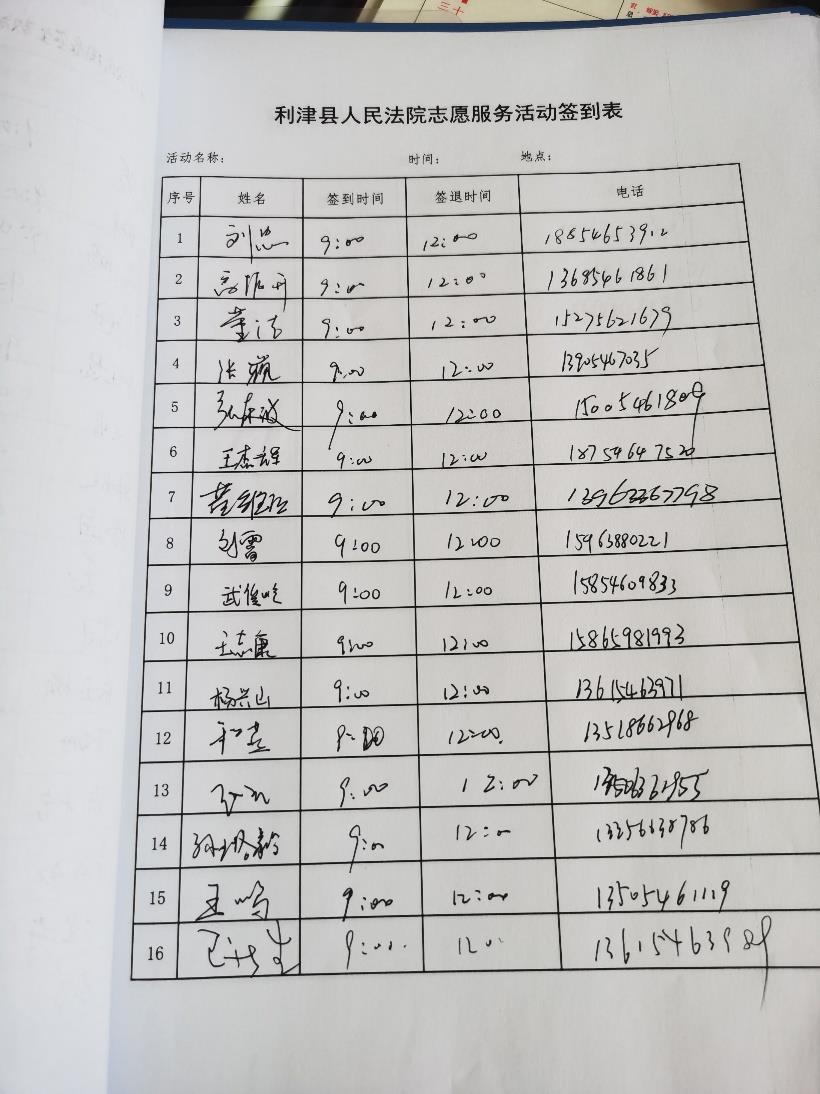 三十
利津县人民法院志愿服务活动签到表
活动名称： 时间： 地点：
序号 姓名 签到时间 签退时间 电话
1 9:00 12:00 18654653912
2 9:00 12:00 13685461861
3 董洁 9:00 12:00 15275621679
4 张巍 9:00 12:00 13905467035
5 9:00 12:00 15005461809
6 王杰辉 9:00 12:00 18754647520
7 9:00 12:00 13963367798
8 刘雷 9:00 12:00 15963880221
9 武俊屹 9:00 12:00 15854609833
10 王志康 9:00 12:00 15865981993
11 杨兴山 9:00 12:00 13615463971
12 9:00 12:00 13518662968
13 9:00 12:00
14 9:00 12:00 13256638786
15 王鸣 9:00 12:00 13505461119
16 9:00 12:00 13615463989